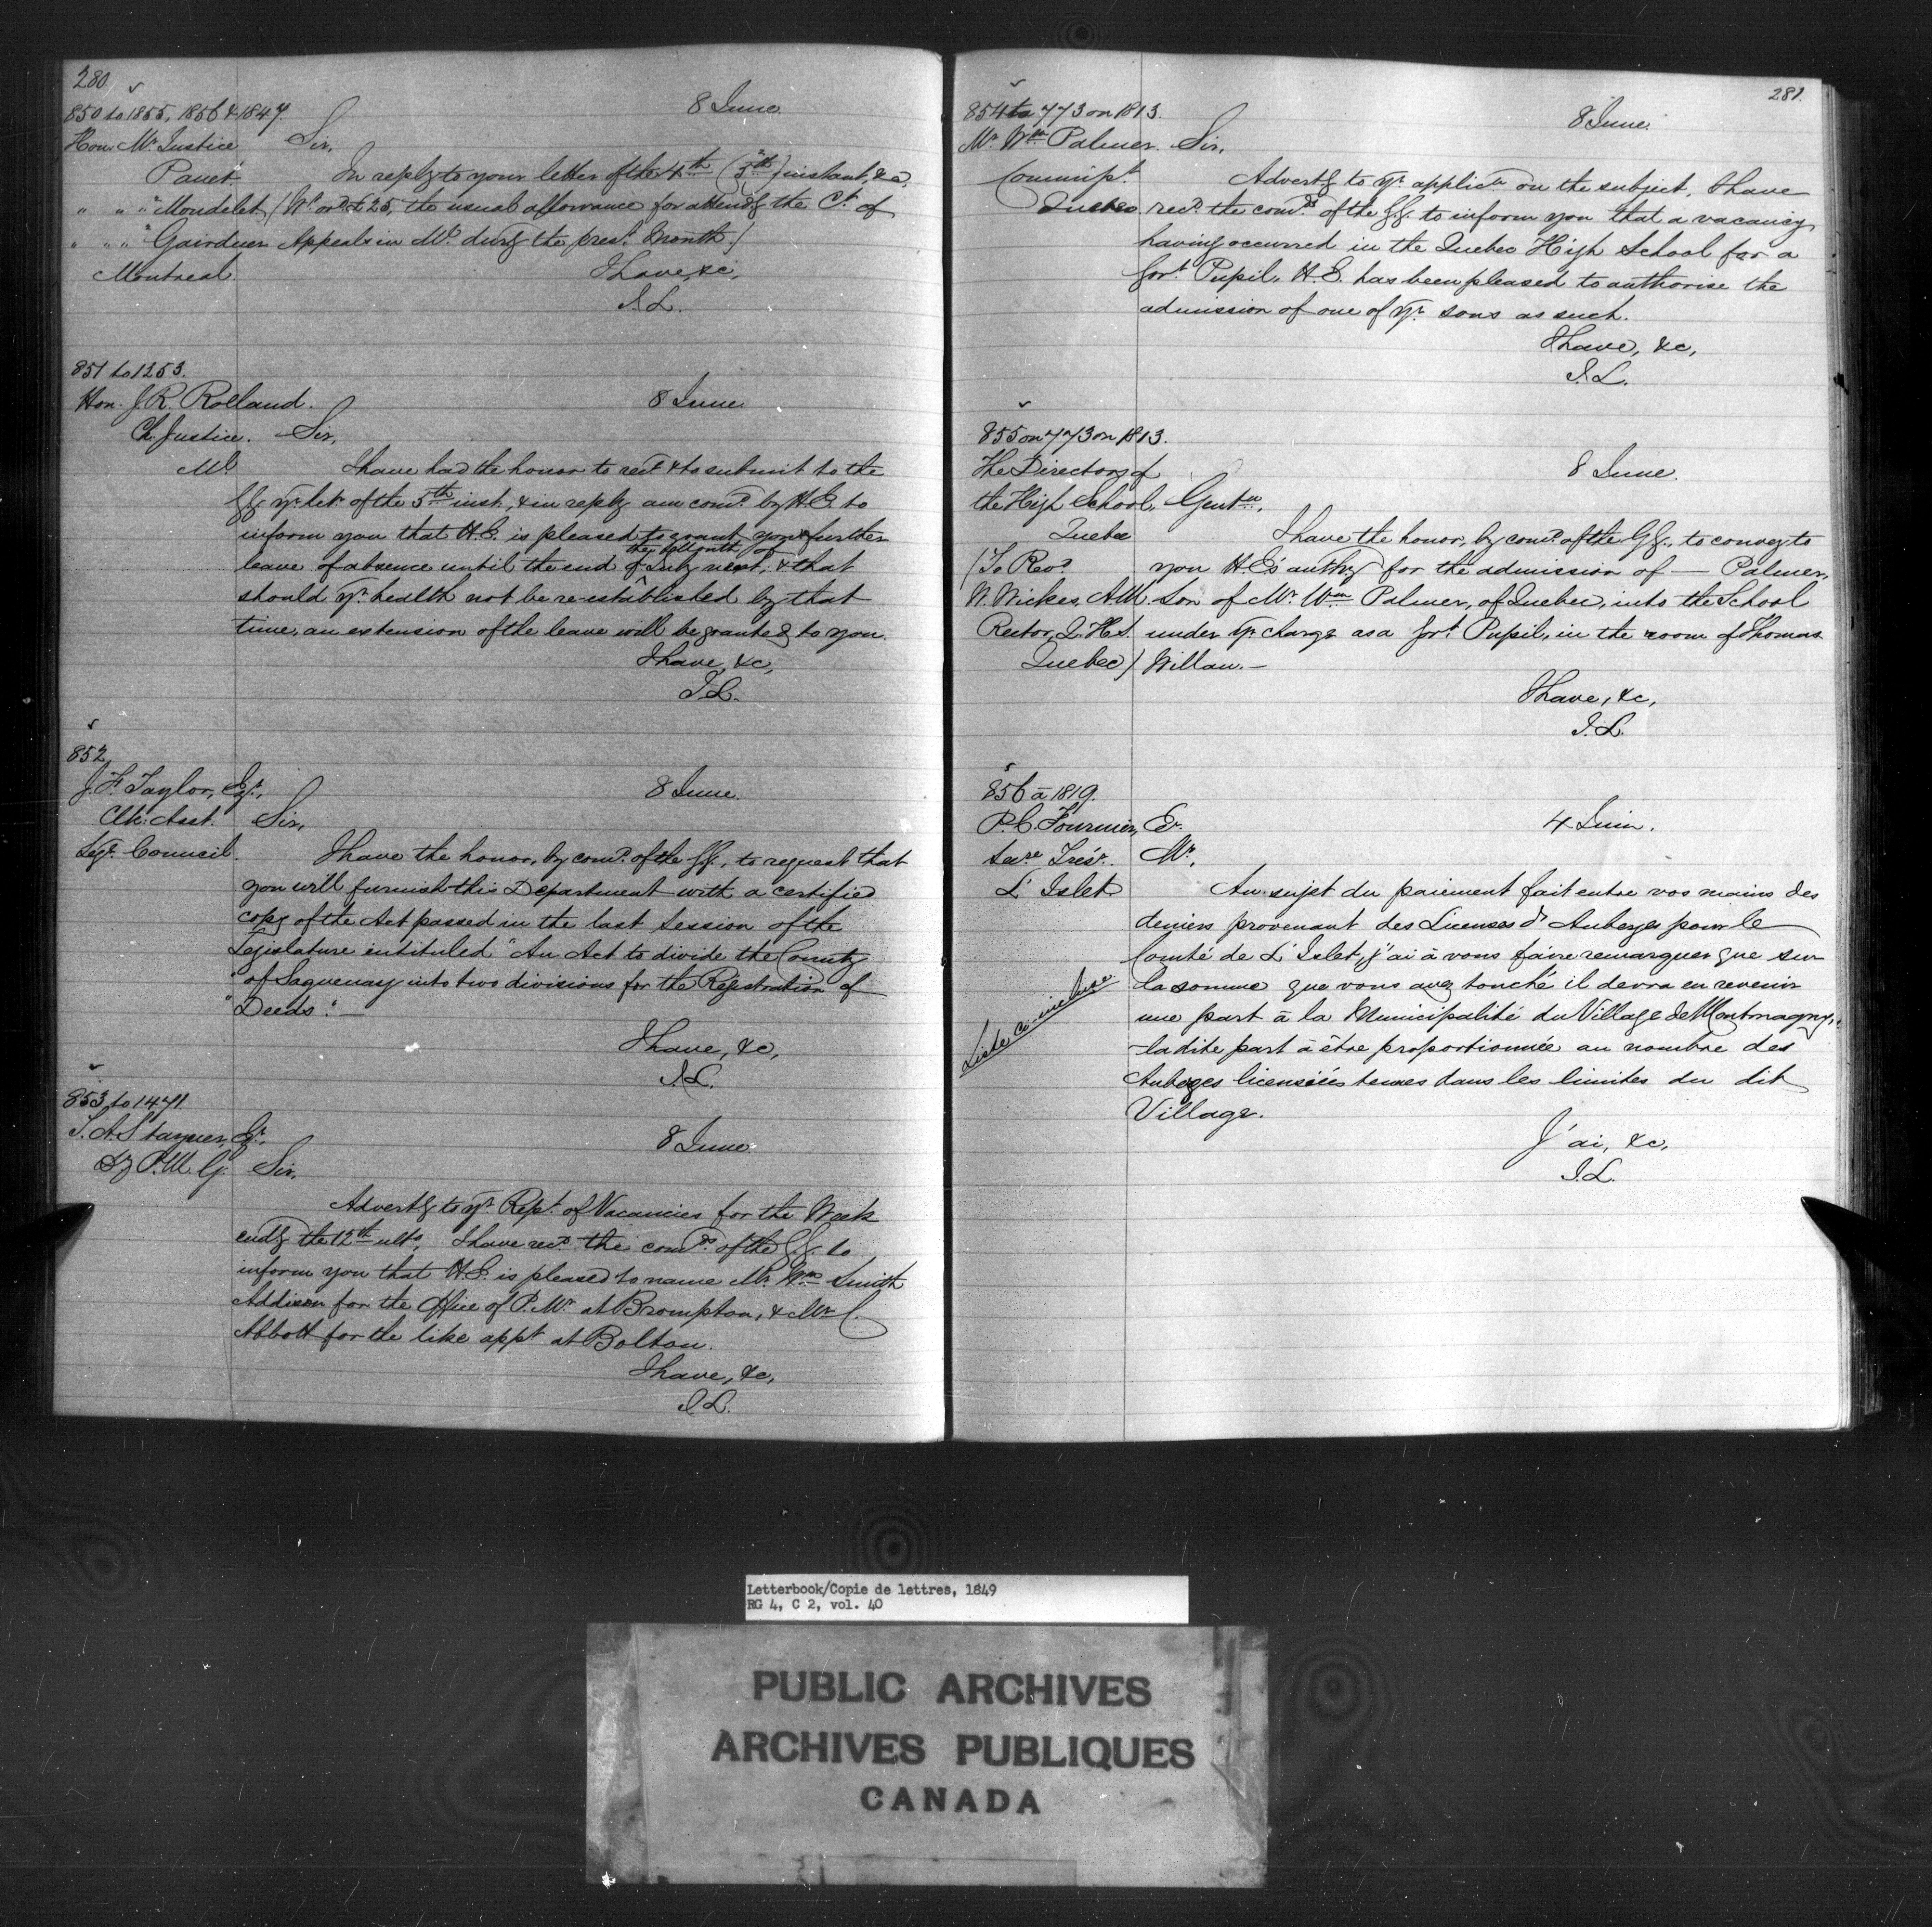 280.
850 to 1855, 1856 & 1847.
8 June
Hon. Mr. Justice Sir,
Panet. In reply to your letter of the 4th (5th) instant, &c,
" " " Mondelet (Wt. ord £25, the usual allowance for attendg the Ct. of
" " " Gairdner Appeals in Ml. durg the prest. Month)
Montreal. I have, &c,
J.L.
851 to 1253.
Hon. J.R. Rolland. 8 June.
Ch. Justice. Sir,
Ml I have had the honor to rect. & to submit to the
GG. yr. let. of the 5th inst., & in reply am comd. by H.E. to
inform you that H.E. is pleased to grant you further
leave of absence until the end of the Month of July next, & that
should yr. health not be re-established by that
time, an extension of the leave will be granted to you.
I have, &c,
J.L.
852
J. F. Taylor, Esqr., 8 June.
Clk. Asst. Sir,
Legve. Council. I have the honor, by comd. of the GG., to request that
you will furnish this Department with a certified
copy of the Act passed in the last Session of the
Legislature intituled "An Act to divide the County
"of Saguenay into two divisions for the Registration of
"Deeds". —
I have, &c,
J.L.
853 to 1471.
T. A. Stayner, Er. 8 June.
Dy P.M.G. Sir,
Advertg to yr. Rept. of Vacancies for the Week
endg the 12th ulto, I have recd. the comds. of the G.G. to
inform you that H.E. is pleased to name Mr. Wm. Smith
Addison for the Office of P. Mr. at Brompton, & Mr. C.
Abbott for the like appt. at Bolton.
I have, &c,
J.L.
281.
854 to 773 on 1813.
8 June.
Mr. Wm. Palmer. Sir,
Commisst. Advertg to yr. applicn on the subject, I have
Quebec recd. the comds. of the GG. to inform you that a vacancy
having occurred in the Quebec High School for a
Govt. Pupil, H.E. has been pleased to authorise the
admission of one of yr. sons as such.
I have, &c,
J.L.
855 on 773 on 1813.
The Directors of 8 June.
the High School, Gentn,
Quebec I have the honor, by comd. of the GG., to convey to
(To Revd. you H.E's authy for the admission of — Palmer,
W. Wickes, A.M. Son of Mr. Wm. Palmer, of Quebec, into the School
Rector, Q.H.S. under yr. charge as a Govt. Pupil, in the room of Thomas
Quebec) Willan. —
I have, &c,
J.L.
856 à 1819.
P. C. Fournier, Er. 4 Juin.
Secre. Trésr. Mr.,
L'Islet Au sujet du paiement fait entre vos mains des
deniers provenant des Licenses d'Auberges pour le
Comté de L'Islet, j'ai à vous faire remarquer que sur
la somme que vous avez touché il devra en revenir
une part à la Municipalité du Village de Montmagny,
ladite part à être proportionnée au nombre des
Auberges licenciées tenues dans les limites du dit
Village.
Liste ci-incluse
J'ai, &c,
J.L.
Letterbook/Copie de lettres, 1849
RG 4, C 2, vol. 40
PUBLIC ARCHIVES
ARCHIVES PUBLIQUES
CANADA